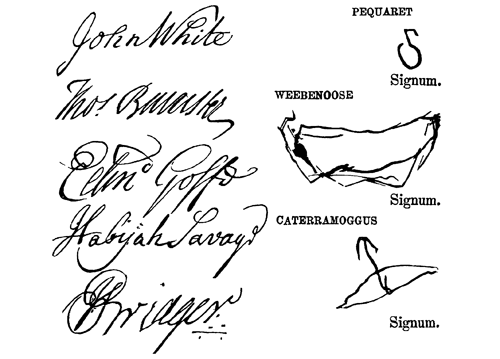 John White
Thos. Banister
Edmo Goffe
Habijah Savage
J Bridger
PEQUARET
Signum.
WEEBENOOSE
Signum.
CATERRAMOGGUS
Signum.